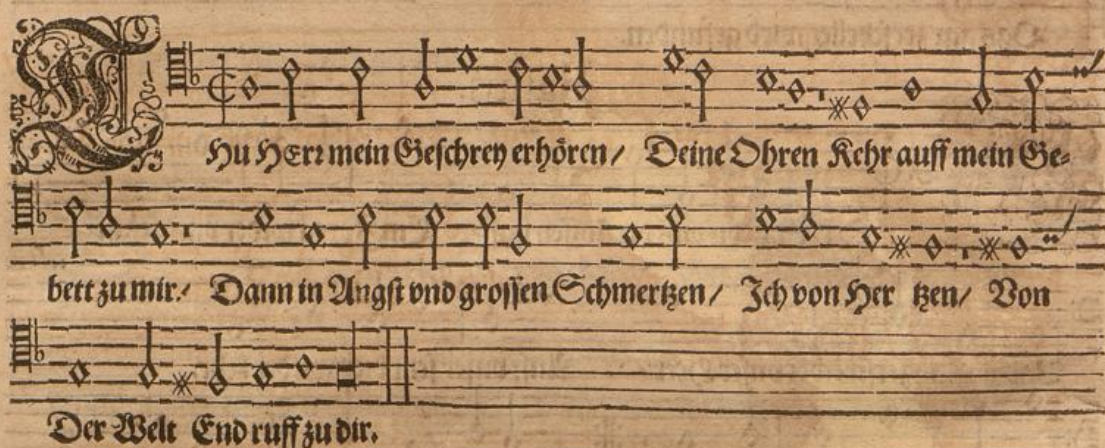 THu HErr mein Geschrey erhören/ Deine Ohren Kehr auff mein Ge-
bett zu mir/ Dann in Angst vnd grossen Schmertzen/ Ich von Her tzen/ Von
Der Welt End ruff zu dir.